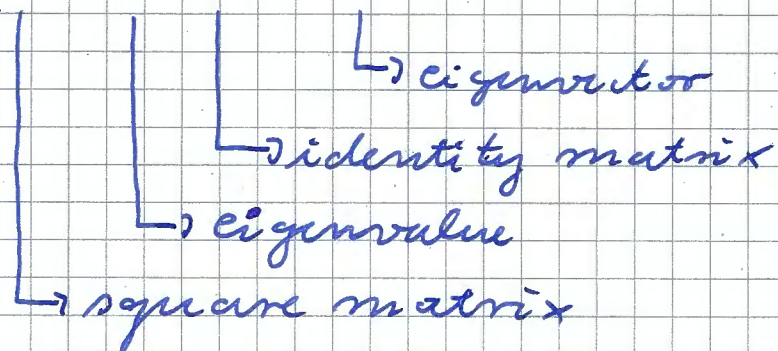 eigenvector
identity matrix
eigenvalue
square matrix